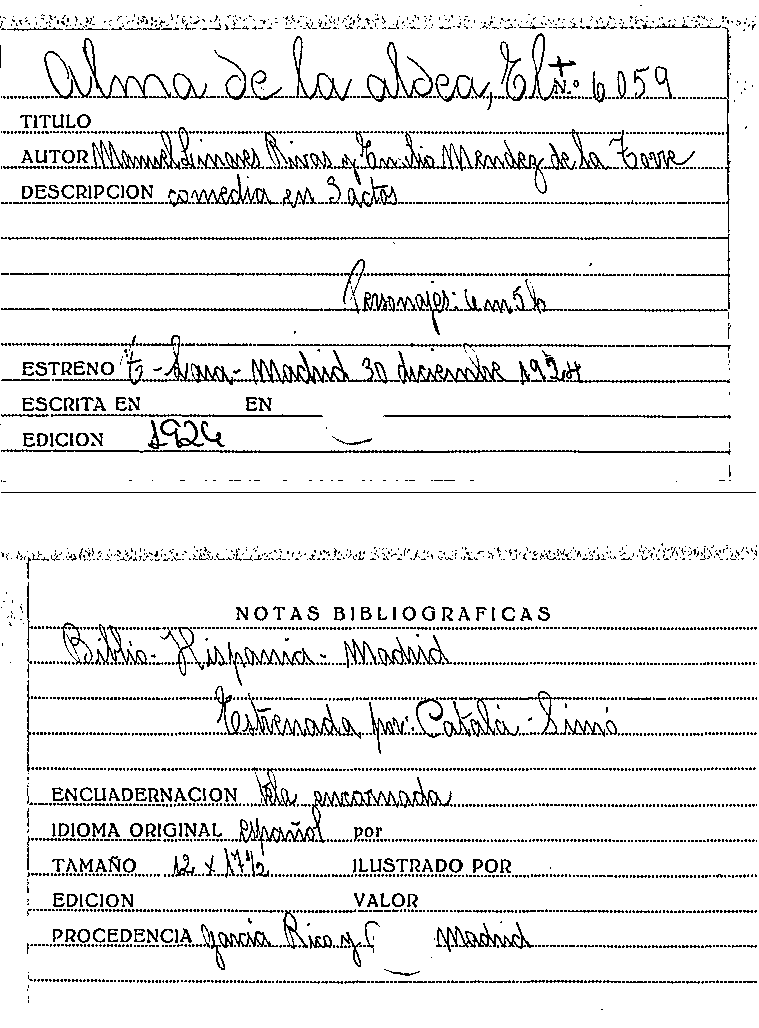 Alma de la aldea, El N.º 6059
TITULO
AUTOR Manuel Linares Rivas y Emilio Mendez de la Torre
DESCRIPCION comedia en 3 actos
Personajes: 6m 5h
ESTRENO T-Lara-Madrid 30 diciembre 1924
ESCRITA EN EN
EDICION 1924
NOTAS BIBLIOGRAFICAS
Biblio-Hispania-Madrid
Estrenada por: Catalá-Simó
ENCUADERNACION tela encarnada
IDIOMA ORIGINAL español por
TAMAÑO 12 x 17½ ILUSTRADO POR
EDICION VALOR
PROCEDENCIA García Rico y Madrid